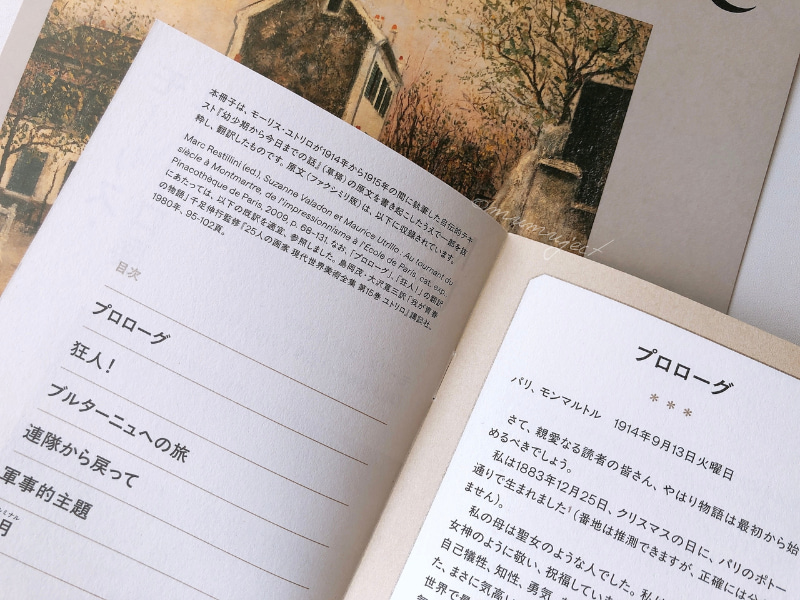 本冊子は、モーリス・ユトリロが1914年から1915年の間に執筆した自伝的テキ
スト『幼少期から今日までの話』（草稿）の原文を書き起こしたうえで一部を抜
粋し、翻訳したものです。原文（ファクシミリ版）は、以下に収録されています。
Marc Restillini (ed.), Suzanne Valadon et Maurice Utrillo : Au tournant du
siècle à Montmartre, de l'impressionnisme à l'École de Paris, cat. exp.,
Pinacothèque de Paris, 2009, p. 68-131. なお、「プロローグ」、「狂人！」の翻訳
にあたっては、以下の既訳を適宜、参照しました。島岡茂・大沢寛三訳「我が青春
の物語」千足伸行監修『25人の画家 現代世界美術全集 第15巻 ユトリロ』講談社、
1980年、95-102頁。
目次
プロローグ
狂人！
ブルターニュへの旅
連隊から戻って
軍事的主題
月
プロローグ
***
パリ、モンマルトル 1914年9月13日火曜日
さて、親愛なる読者の皆さん、やはり物語は最初から始
めるべきでしょう。
私は1883年12月25日、クリスマスの日に、パリのポトー
通りで生まれました¹（番地は推測できますが、正確には分
ません）。
私の母は聖女のような人でした。私は
女神のように敬い、祝福していま
自己犠牲、知性、勇気、
た、まさに気高い
世界で最